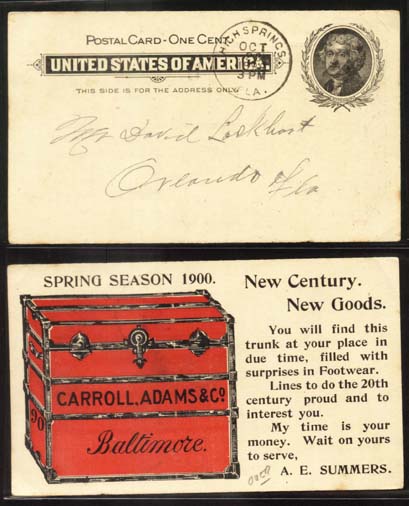 POSTAL CARD - ONE CENT.
UNITED STATES OF AMERICA.
THIS SIDE IS FOR THE ADDRESS ONLY.
HIGH SPRINGS
OCT
3 PM
FLA.
Mr David Lockhart
Orlando Fla
SPRING SEASON 1900.
CARROLL, ADAMS & Co
90
Baltimore.
New Century.
New Goods.
You will find this
trunk at your place in
due time, filled with
surprises in Footwear.
Lines to do the 20th
century proud and to
interest you.
My time is your
money. Wait on yours
to serve,
A. E. SUMMERS.